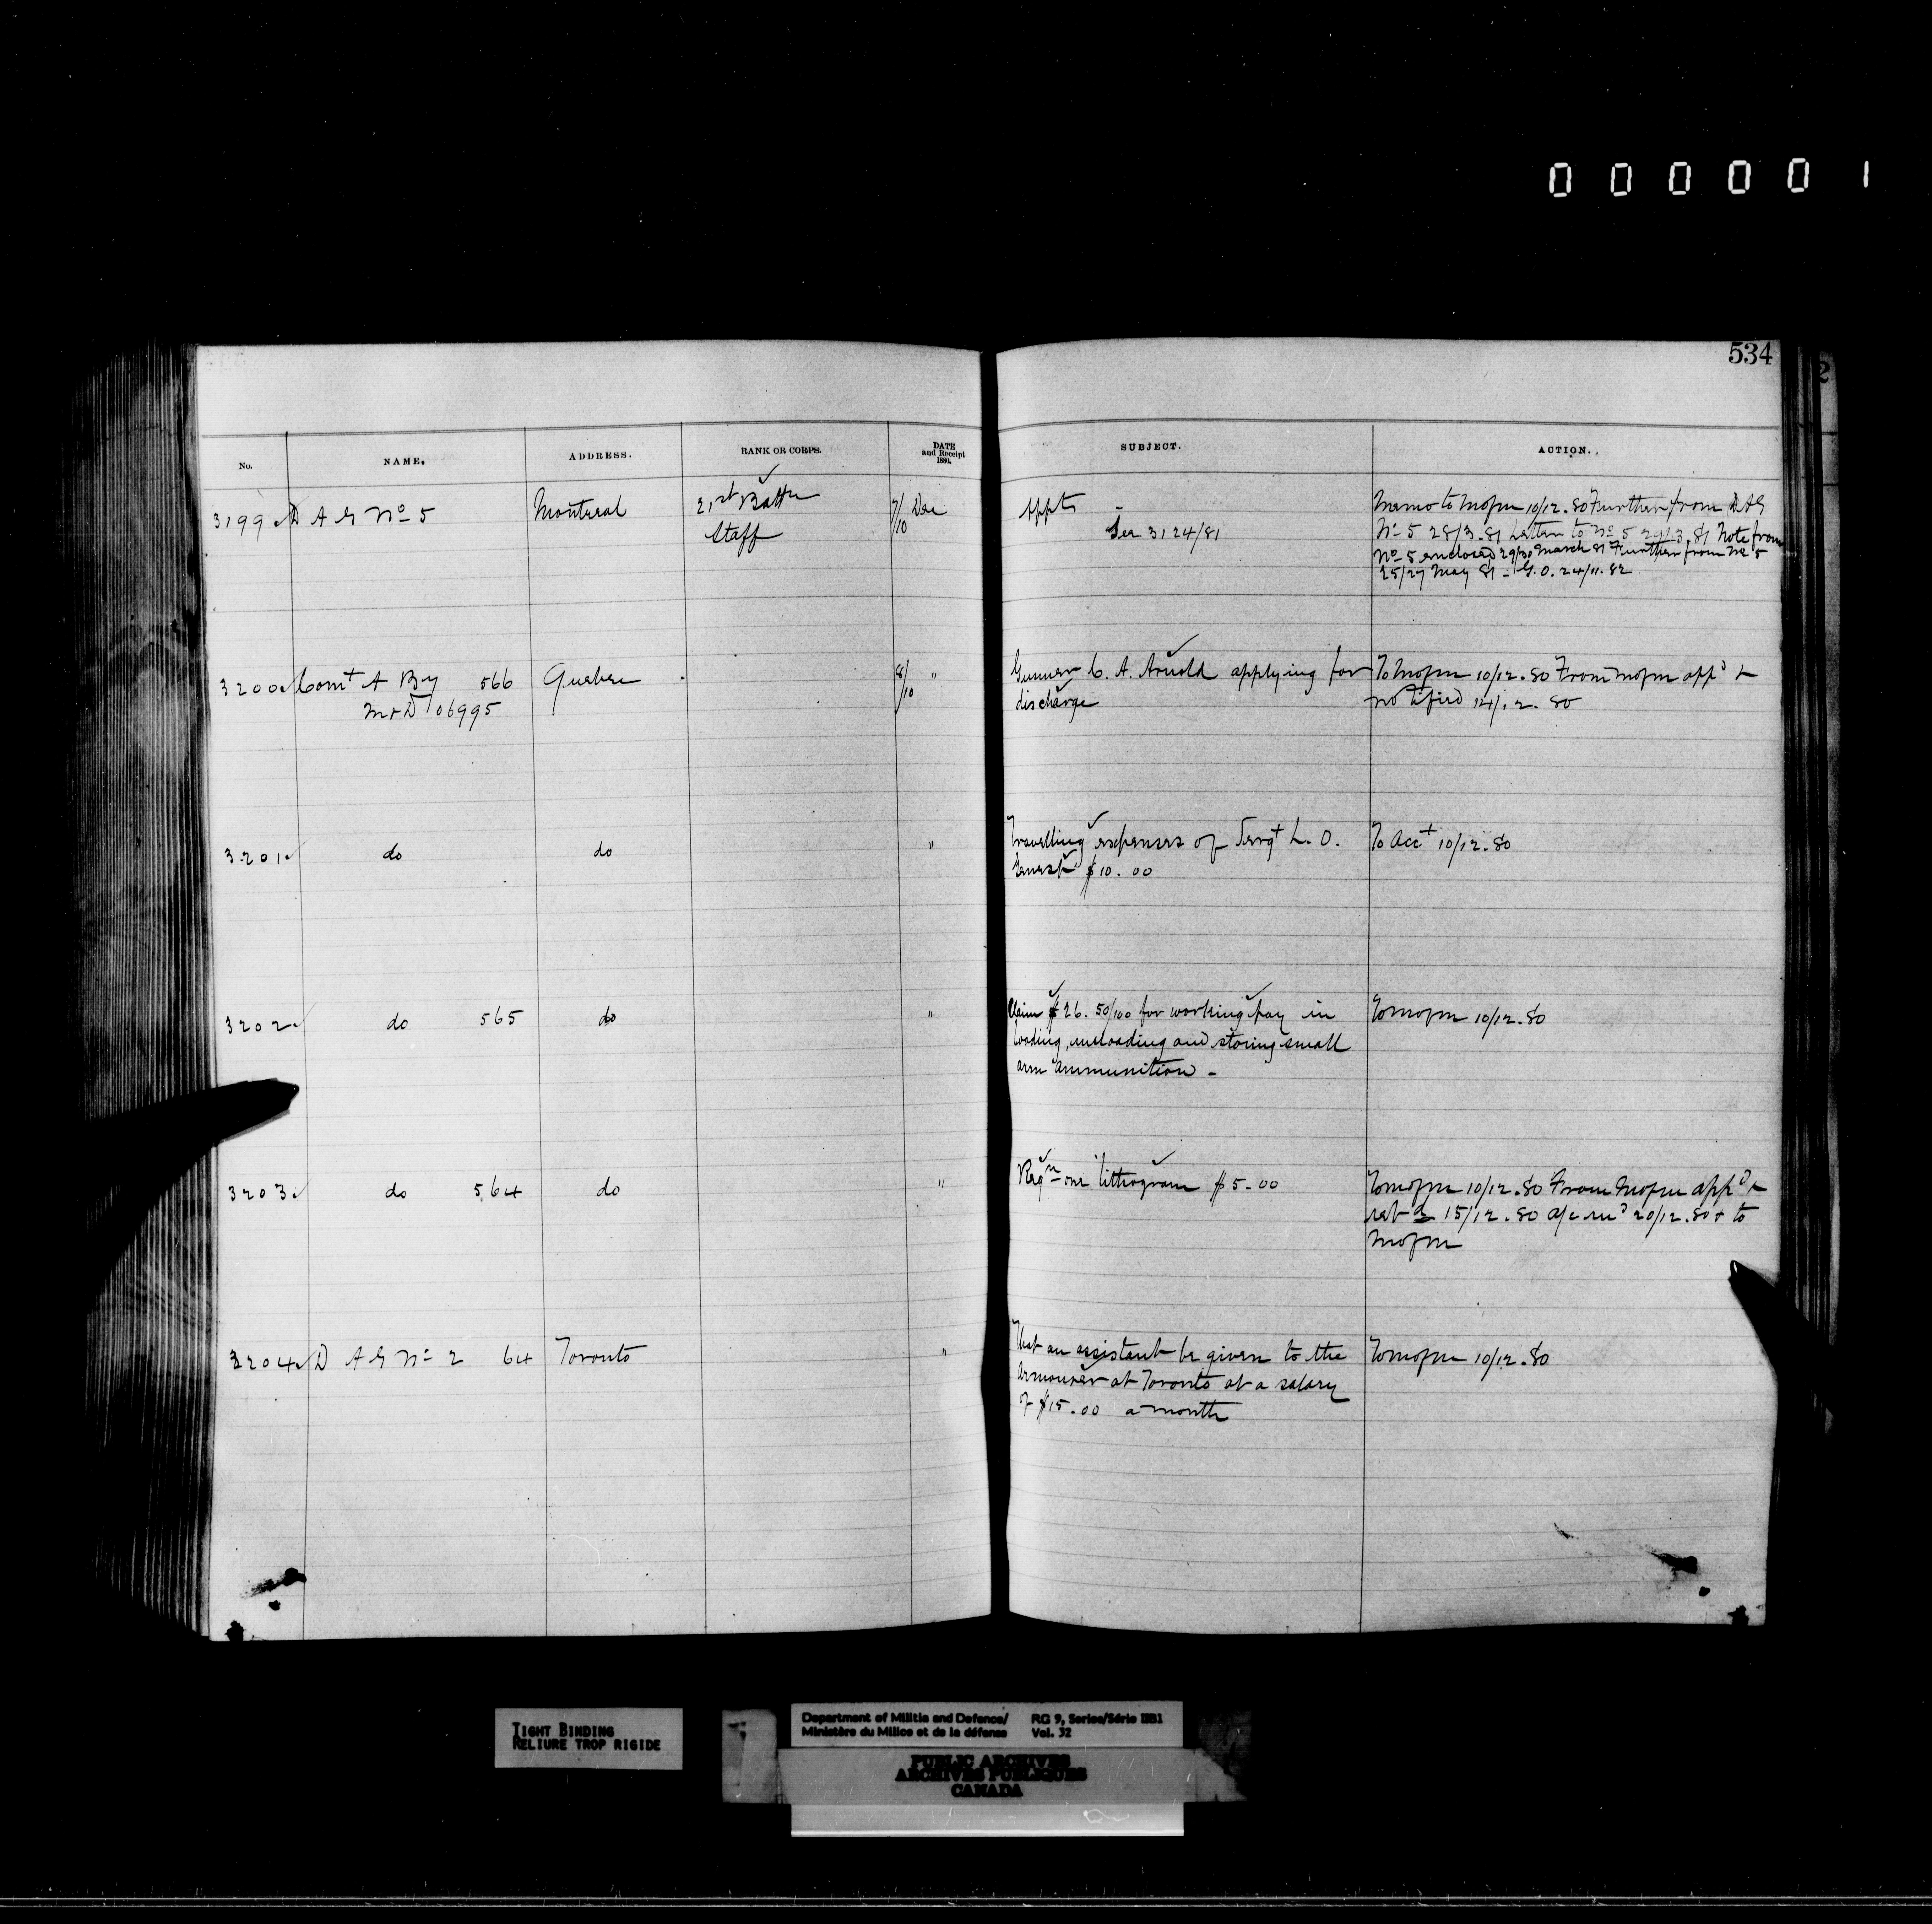 000001
534
No. NAME. ADDRESS. RANK OR CORPS. DATE and Receipt 1880. SUBJECT. ACTION.
3199 D A G No 5 Montreal 21st Battn 7/10 Dec Appts - Memo to Mofm 10/12.80 Further from DAG
Staff See 3124/81 No 5 28/3.81 Letter to No 5 29/3.81 Note from
No 5 enclosed 29/30 March 81 Further from No 5
25/27 May 81 - G.O. 24/11.82
3200 Comt A By 566 Quebec 8/10 " Gunner C. A. Arnold applying for To Mofm 10/12.80 From Mofm appd +
M+D 06995 discharge notified 14/12.80
3201 do do " Travelling expenses of Sergt L. O. To Acct 10/12.80
Genest $10.00
3202 do 565 do " Claim $26.50/100 for working pay in To Mofm 10/12.80
loading, unloading and storing small
arm ammunition -
3203 do 564 do " Reqn one lithogram $5.00 To Mofm 10/12.80 From Mofm appd +
15/12.80 a/c recd 20/12.80 + to
Mofm
3204 D A G No 2 64 Toronto " That an assistant be given to the To Mofm 10/12.80
Armourer at Toronto at a salary
of $15.00 a month
TIGHT BINDING
RELIURE TROP RIGIDE
Department of Militia and Defence/ RG 9, Series/Série IIB1
Ministère du Milice et de la défense Vol. 32
PUBLIC ARCHIVES
ARCHIVES PUBLIQUES
CANADA